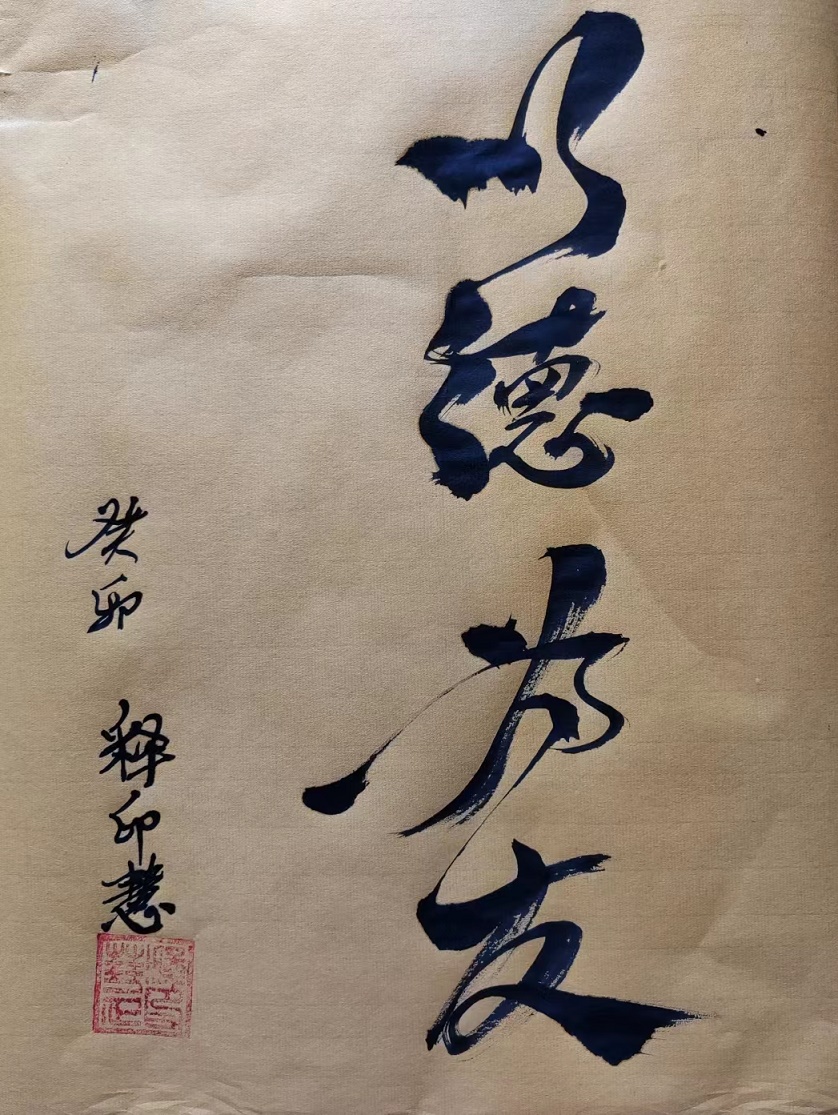 以德为友
癸卯 释印慧